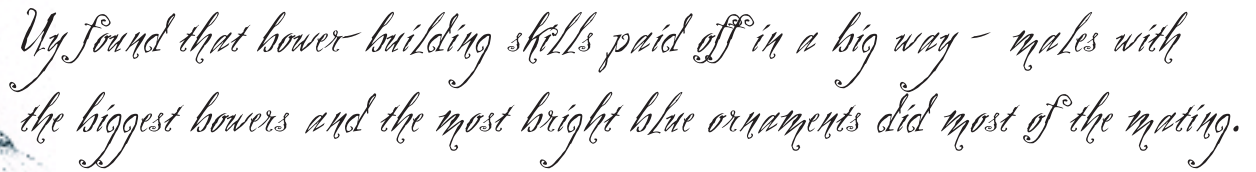 Uy found that bower-building skills paid off in a big way - males with
the biggest bowers and the most bright blue ornaments did most of the mating.